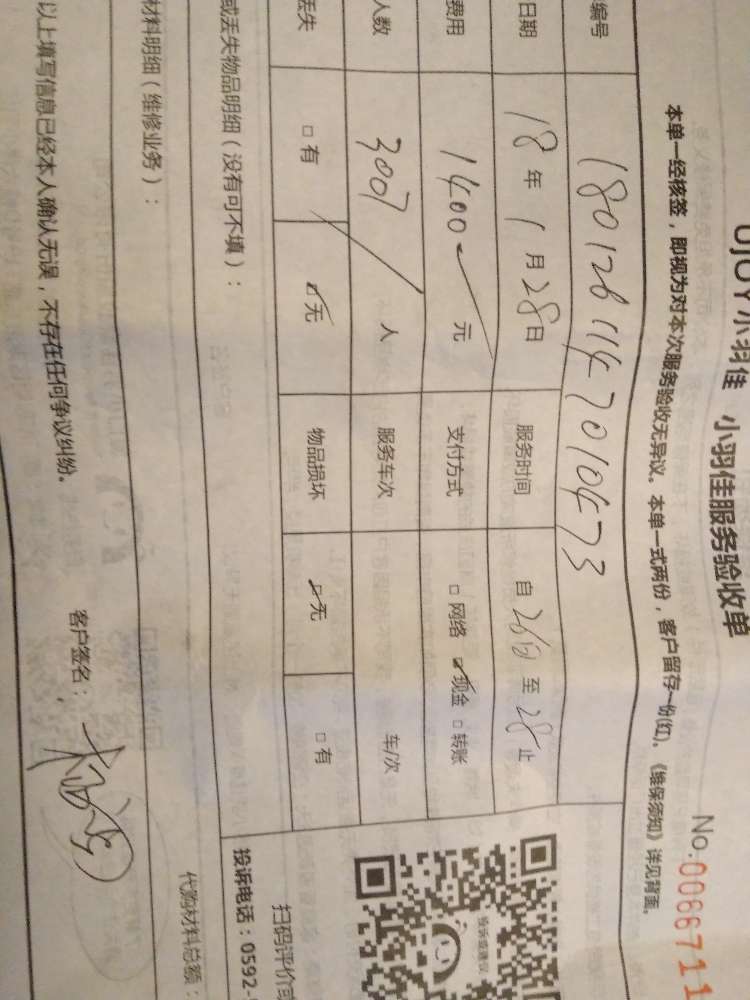 UJOY小羽佳 小羽佳服务验收单
No.0066711
本单一经核签，即视为对本次服务验收无异议。本单一式两份，客户留存一份(红)。《维保须知》详见背面。
编号
日期 18年1月28日 服务时间 自26日至28止
费用 1400元 支付方式 □网络 ☑现金 □转账
人数 人 服务车次 车/次
丢失 □有 ☑无 物品损坏 ☑无 □有
或丢失物品明细（没有可不填）：
投诉或建议
扫码评价或
投诉电话：0592-
材料明细（维修业务）：
代购材料总额：
以上填写信息已经本人确认无误，不存在任何争议纠纷。 客户签名：